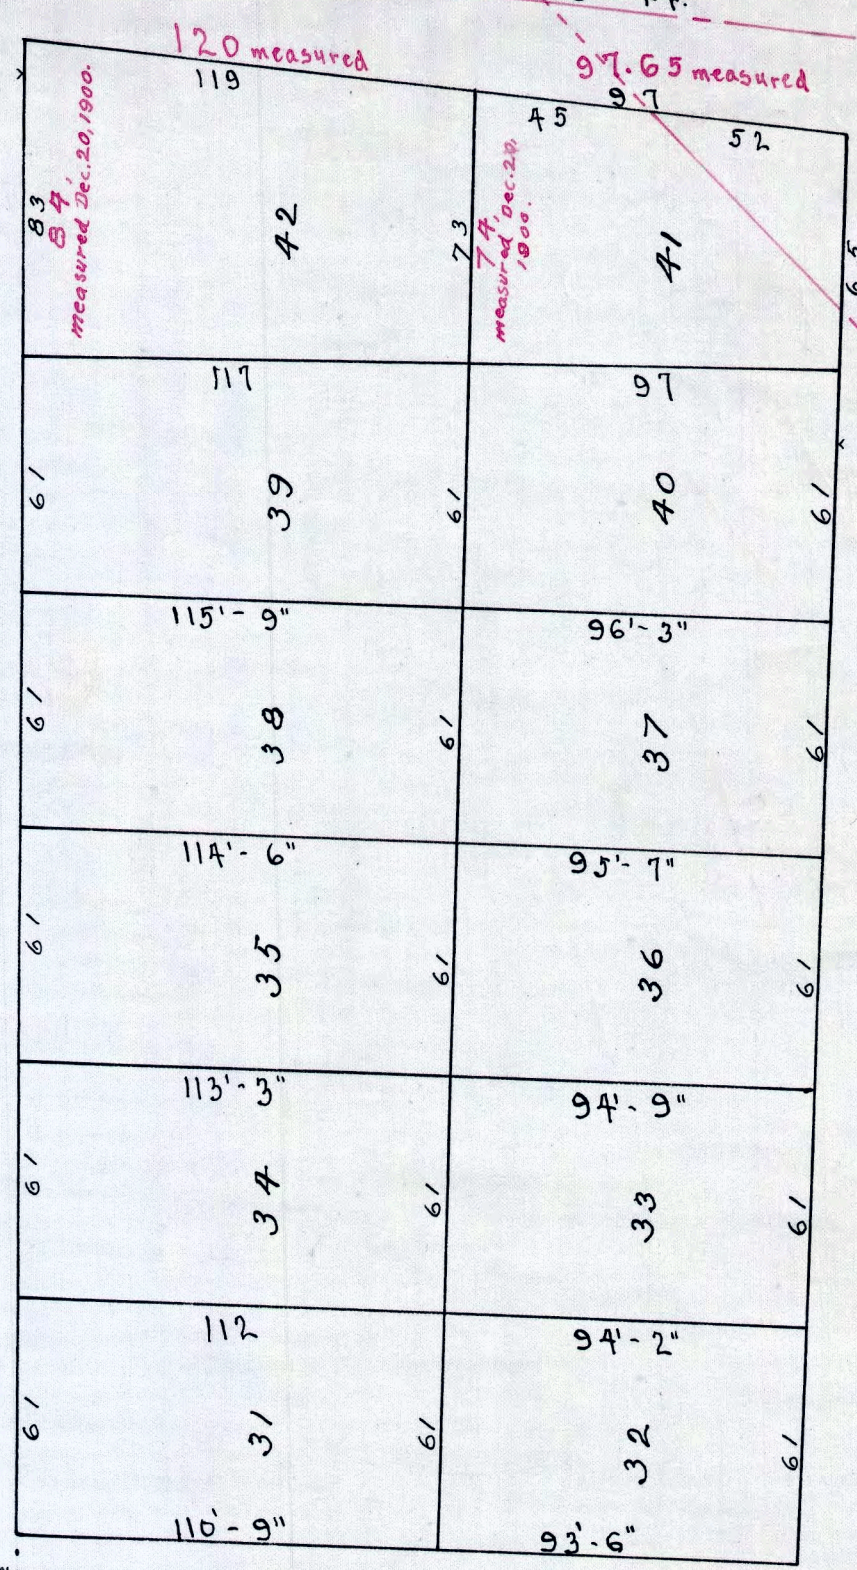 120 measured
97.65 measured
119
97
45
52
83
84,
measured Dec. 20, 1900.
42
73
74,
measured Dec. 20,
1900.
41
65
117
97
61
39
61
40
61
115'- 9"
96'- 3"
61
38
61
37
61
114'- 6"
95'- 7"
61
35
61
36
61
113'- 3"
94'- 9"
61
34
61
33
61
112
94'- 2"
61
31
61
32
61
110'- 9"
93'- 6"